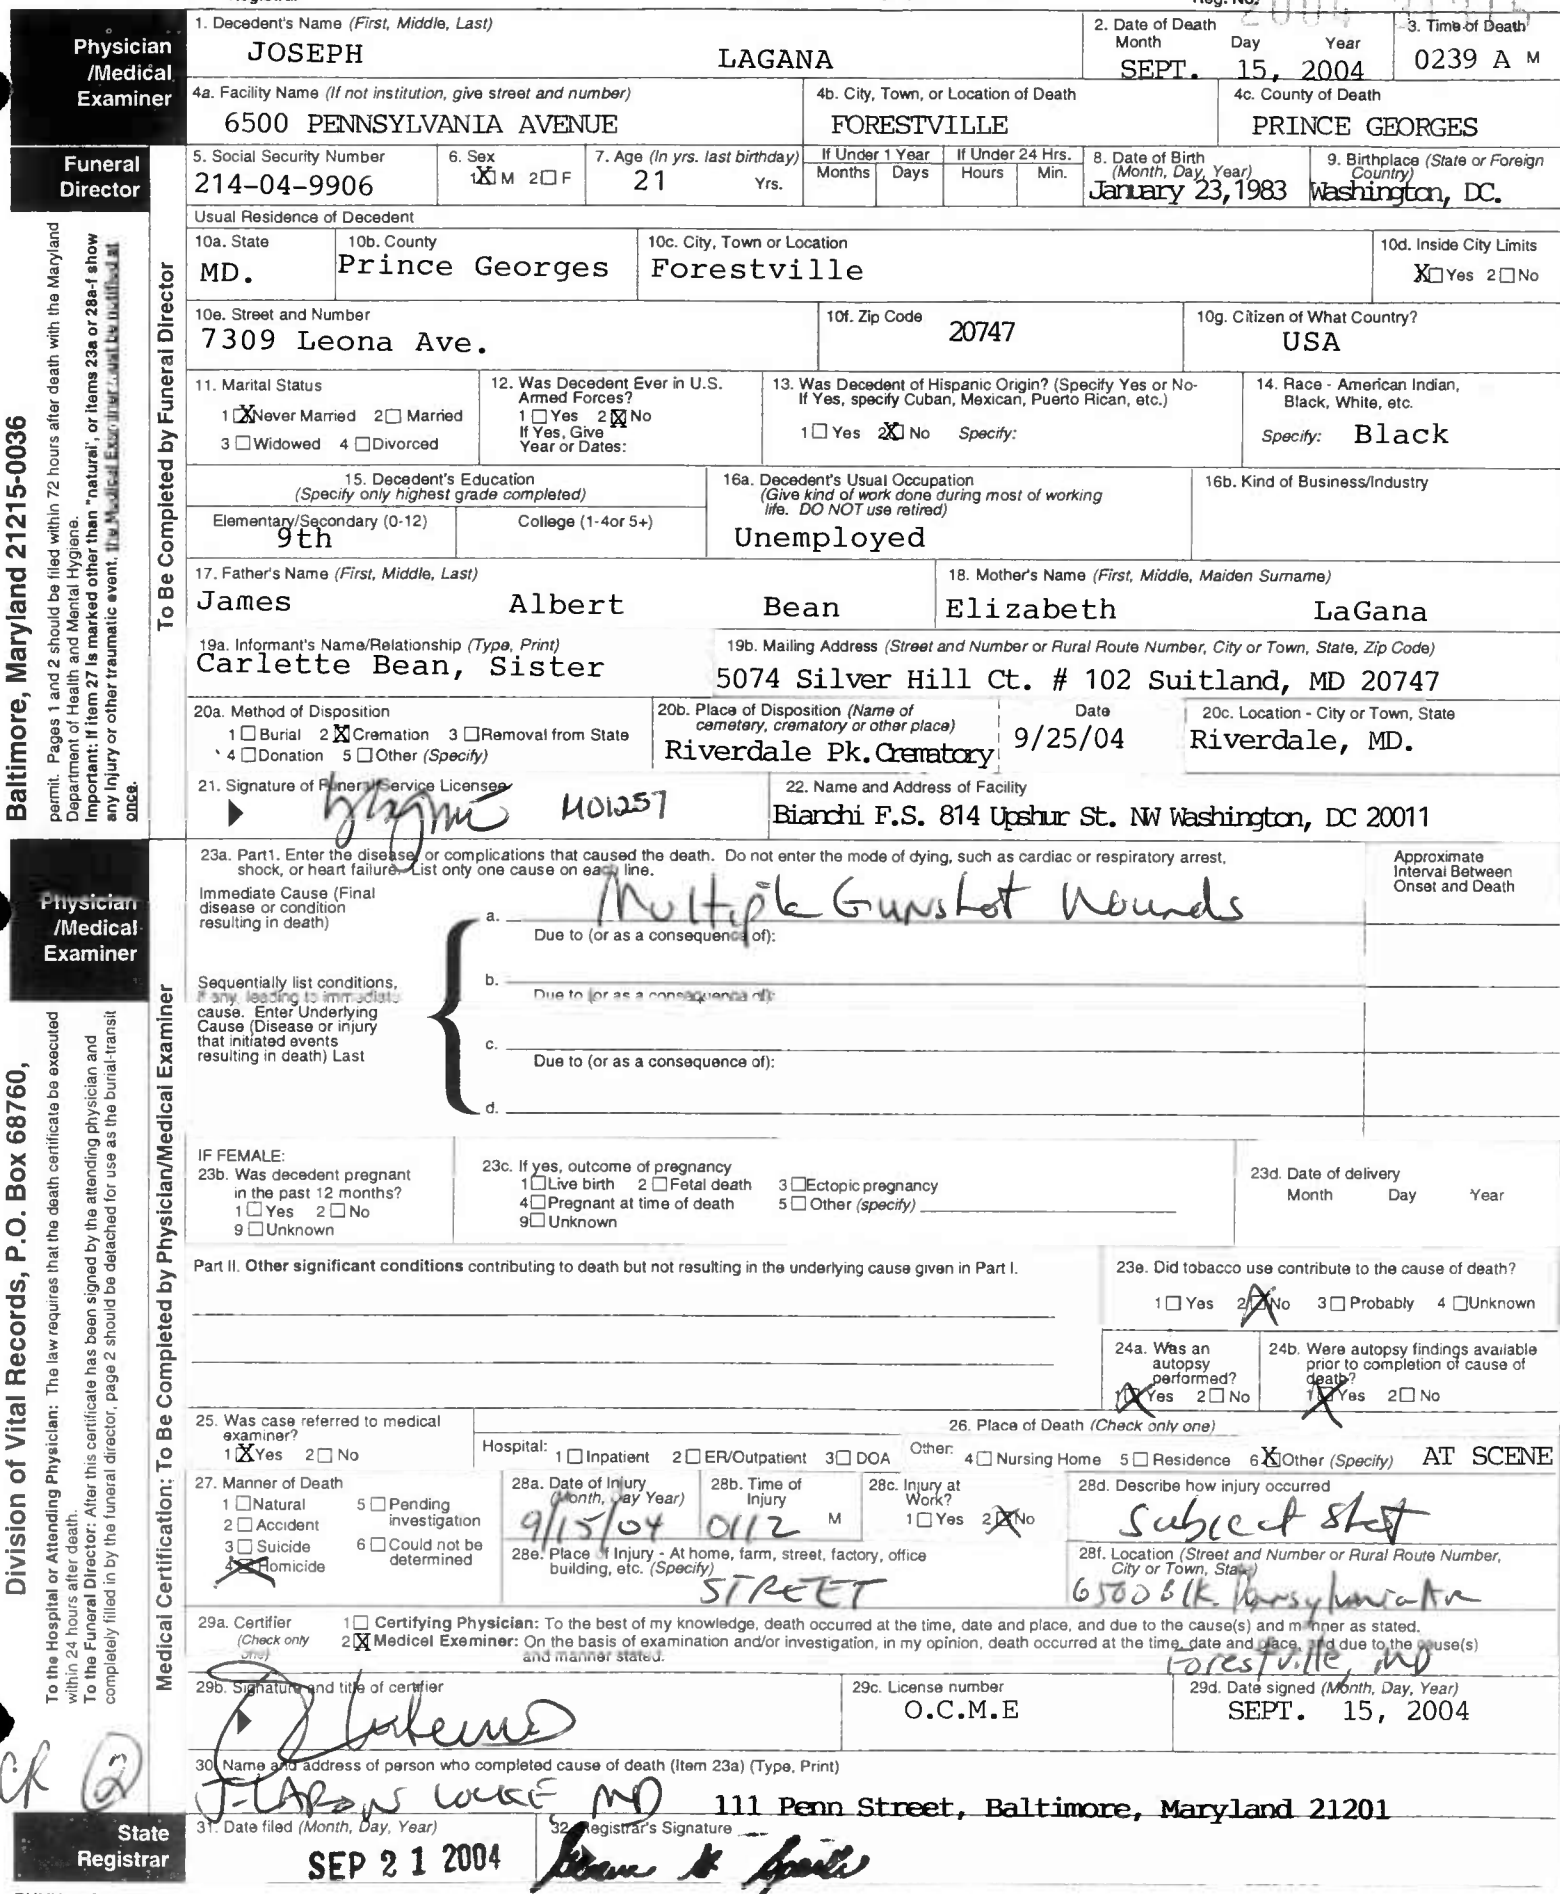 1. Decedent's Name (First, Middle, Last)
JOSEPH LAGANA
2. Date of Death
Month Day Year
SEPT. 15, 2004
3. Time of Death
0239 A M
Physician
/Medical
Examiner
4a. Facility Name (If not institution, give street and number)
6500 PENNSYLVANIA AVENUE
4b. City, Town, or Location of Death
FORESTVILLE
4c. County of Death
PRINCE GEORGES
Funeral
Director
5. Social Security Number
214-04-9906
6. Sex
1☒ M 2☐ F
7. Age (In yrs. last birthday)
21 Yrs.
If Under 1 Year
Months Days
If Under 24 Hrs.
Hours Min.
8. Date of Birth
(Month, Day, Year)
January 23,1983
9. Birthplace (State or Foreign
Country)
Washington, DC.
Usual Residence of Decedent
10a. State
MD.
10b. County
Prince Georges
10c. City, Town or Location
Forestville
10d. Inside City Limits
X☐ Yes 2☐ No
10e. Street and Number
7309 Leona Ave.
10f. Zip Code
20747
10g. Citizen of What Country?
USA
11. Marital Status
1☒ Never Married 2☐ Married
3☐ Widowed 4☐ Divorced
12. Was Decedent Ever in U.S.
Armed Forces?
1☐ Yes 2☒ No
If Yes, Give
Year or Dates:
13. Was Decedent of Hispanic Origin? (Specify Yes or No-
If Yes, specify Cuban, Mexican, Puerto Rican, etc.)
1☐ Yes 2☒ No Specify:
14. Race - American Indian,
Black, White, etc.
Specify: Black
15. Decedent's Education
(Specify only highest grade completed)
Elementary/Secondary (0-12)
9th
College (1-4or 5+)
16a. Decedent's Usual Occupation
(Give kind of work done during most of working
life. DO NOT use retired)
Unemployed
16b. Kind of Business/Industry
17. Father's Name (First, Middle, Last)
James Albert Bean
18. Mother's Name (First, Middle, Maiden Surname)
Elizabeth LaGana
19a. Informant's Name/Relationship (Type, Print)
Carlette Bean, Sister
19b. Mailing Address (Street and Number or Rural Route Number, City or Town, State, Zip Code)
5074 Silver Hill Ct. # 102 Suitland, MD 20747
20a. Method of Disposition
1☐ Burial 2☒ Cremation 3☐ Removal from State
4☐ Donation 5☐ Other (Specify)
20b. Place of Disposition (Name of
cemetery, crematory or other place)
Riverdale Pk. Crematory
Date
9/25/04
20c. Location - City or Town, State
Riverdale, MD.
21. Signature of Funeral Service Licensee
M01257
22. Name and Address of Facility
Bianchi F.S. 814 Upshur St. NW Washington, DC 20011
To Be Completed by Funeral Director
Baltimore, Maryland 21215-0036
permit. Pages 1 and 2 should be filed within 72 hours after death with the Maryland
Department of Health and Mental Hygiene.
Important: If item 27 is marked other than "natural", or items 23a or 28a-f show
any injury or other traumatic event, the Medical Examiner must be notified at
once.
Physician
/Medical
Examiner
23a. Part1. Enter the disease, or complications that caused the death. Do not enter the mode of dying, such as cardiac or respiratory arrest,
shock, or heart failure. List only one cause on each line.
Approximate
Interval Between
Onset and Death
Immediate Cause (Final
disease or condition
resulting in death)
a. Multiple Gunshot Wounds
Due to (or as a consequence of):
Sequentially list conditions,
if any, leading to immediate
cause. Enter Underlying
Cause (Disease or injury
that initiated events
resulting in death) Last
b.
Due to (or as a consequence of):
c.
Due to (or as a consequence of):
d.
IF FEMALE:
23b. Was decedent pregnant
in the past 12 months?
1☐ Yes 2☐ No
9☐ Unknown
23c. If yes, outcome of pregnancy
1☐ Live birth 2☐ Fetal death 3☐ Ectopic pregnancy
4☐ Pregnant at time of death 5☐ Other (specify)
9☐ Unknown
23d. Date of delivery
Month Day Year
Part II. Other significant conditions contributing to death but not resulting in the underlying cause given in Part I.
23e. Did tobacco use contribute to the cause of death?
1☐ Yes 2☒ No 3☐ Probably 4☐ Unknown
24a. Was an
autopsy
performed?
1☒ Yes 2☐ No
24b. Were autopsy findings available
prior to completion of cause of
death?
1☒ Yes 2☐ No
25. Was case referred to medical
examiner?
1☒ Yes 2☐ No
26. Place of Death (Check only one)
Hospital: 1☐ Inpatient 2☐ ER/Outpatient 3☐ DOA Other: 4☐ Nursing Home 5☐ Residence 6☒ Other (Specify) AT SCENE
27. Manner of Death
1☐ Natural 5☐ Pending
investigation
2☐ Accident
3☐ Suicide 6☐ Could not be
determined
4☒ Homicide
28a. Date of Injury
(Month, Day Year)
9/15/04
28b. Time of
Injury
0112 M
28c. Injury at
Work?
1☐ Yes 2☒ No
28d. Describe how injury occurred
Subject Shot
28e. Place of Injury - At home, farm, street, factory, office
building, etc. (Specify)
STREET
28f. Location (Street and Number or Rural Route Number,
City or Town, State)
6500 Blk. Pennsylvania Av
Forestville, MD
29a. Certifier
(Check only
one)
1☐ Certifying Physician: To the best of my knowledge, death occurred at the time, date and place, and due to the cause(s) and manner as stated.
2☒ Medical Examiner: On the basis of examination and/or investigation, in my opinion, death occurred at the time, date and place, and due to the cause(s)
and manner stated.
29b. Signature and title of certifier
29c. License number
O.C.M.E
29d. Date signed (Month, Day, Year)
SEPT. 15, 2004
30. Name and address of person who completed cause of death (Item 23a) (Type, Print)
J. LARON LOCKE, MD 111 Penn Street, Baltimore, Maryland 21201
Medical Certification: To Be Completed by Physician/Medical Examiner
Division of Vital Records, P.O. Box 68760,
To the Hospital or Attending Physician: The law requires that the death certificate be executed
within 24 hours after death.
To the Funeral Director: After this certificate has been signed by the attending physician and
completely filled in by the funeral director, page 2 should be detached for use as the burial-transit
CR 2
State
Registrar
31. Date filed (Month, Day, Year)
SEP 21 2004
32. Registrar's Signature